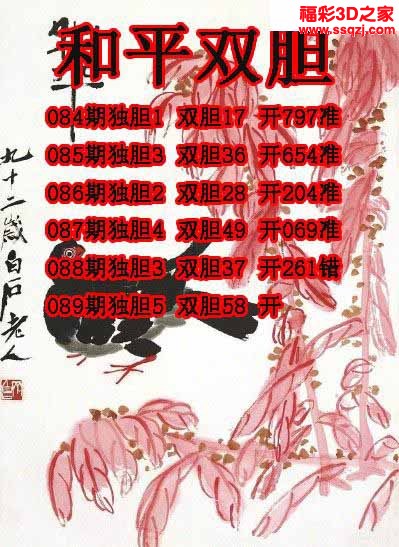 福彩3D之家
www.ssqzj.com
和平双胆
084期独胆1 双胆17 开797准
085期独胆3 双胆36 开654准
086期独胆2 双胆28 开204准
087期独胆4 双胆49 开069准
088期独胆3 双胆37 开261错
089期独胆5 双胆58 开
九十二岁白石老人